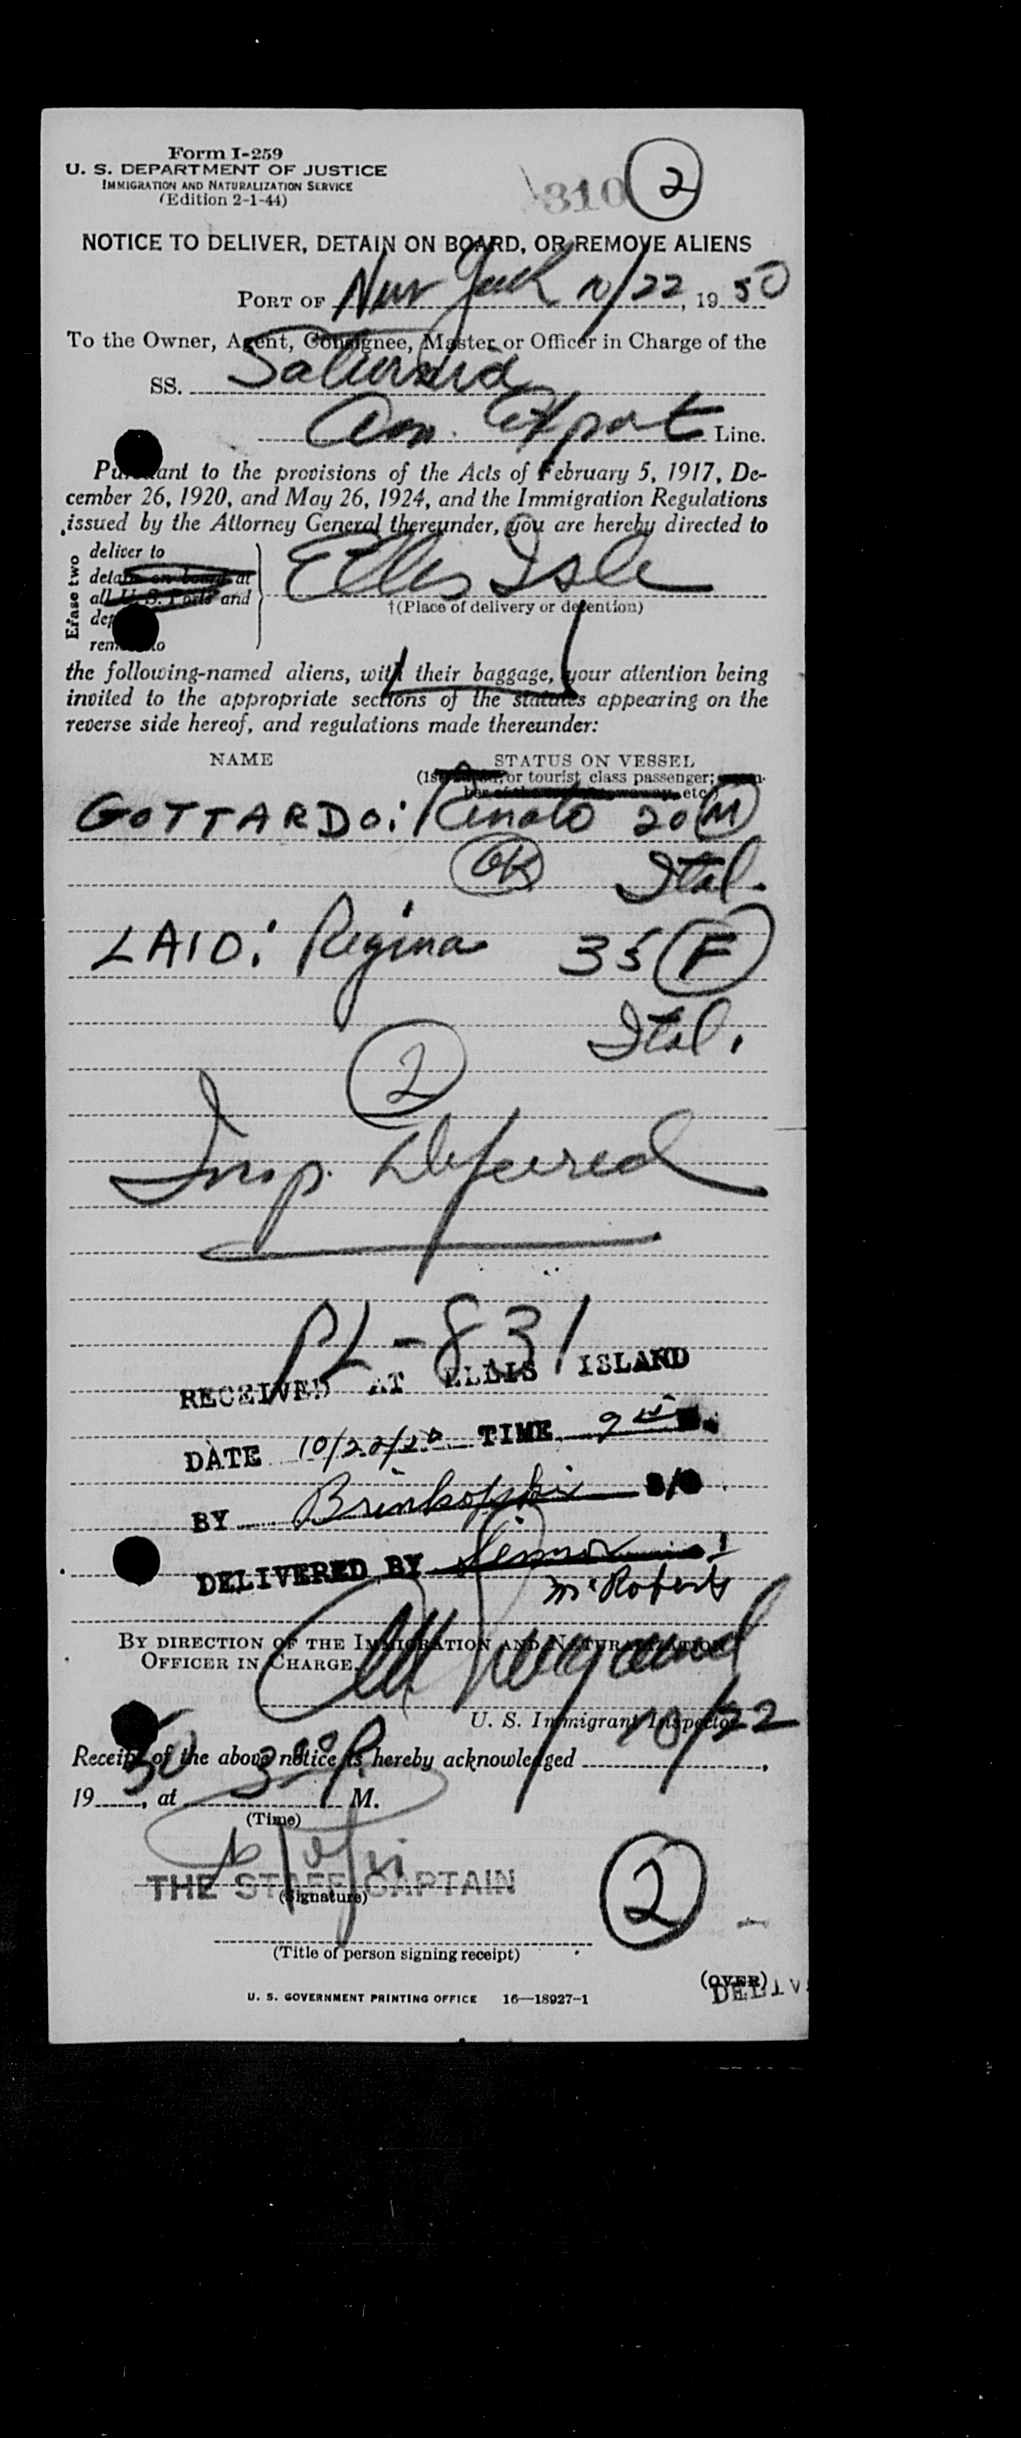 Form I-259
U. S. DEPARTMENT OF JUSTICE
IMMIGRATION AND NATURALIZATION SERVICE
(Edition 2-1-44)
310 2
NOTICE TO DELIVER, DETAIN ON BOARD, OR REMOVE ALIENS
PORT OF New York 10/22, 1950
To the Owner, Agent, Consignee, Master or Officer in Charge of the
SS. Saturnia
Am. Export Line.
Pursuant to the provisions of the Acts of February 5, 1917, De-
cember 26, 1920, and May 26, 1924, and the Immigration Regulations
issued by the Attorney General thereunder, you are hereby directed to
Erase two
deliver to
detain on board at
all U. S. Ports and
remove to
Ellis Isle
†(Place of delivery or detention)
the following-named aliens, with their baggage, your attention being
invited to the appropriate sections of the statutes appearing on the
reverse side hereof, and regulations made thereunder:
NAME STATUS ON VESSEL
or tourist class passenger;
etc.)
GOTTARDO: Renato 20 M
OK Ital.
LAIO: Regina 35 F
Ital.
2
Insp. Deferred
PL-831
RECEIVED AT ELLIS ISLAND
DATE 10/22/50 TIME 9
BY Brinkofski
DELIVERED BY
McRoberts
BY DIRECTION OF THE IMMIGRATION AND NATURALIZATION
OFFICER IN CHARGE.
U. S. Immigrant Inspector.
Receipt of the above notice is hereby acknowledged 10/22,
1950, at 3 00 P. M.
(Time)
THE STAFF CAPTAIN
(Signature)
2
(Title of person signing receipt)
(OVER)
DELIV
U. S. GOVERNMENT PRINTING OFFICE 16—18927-1